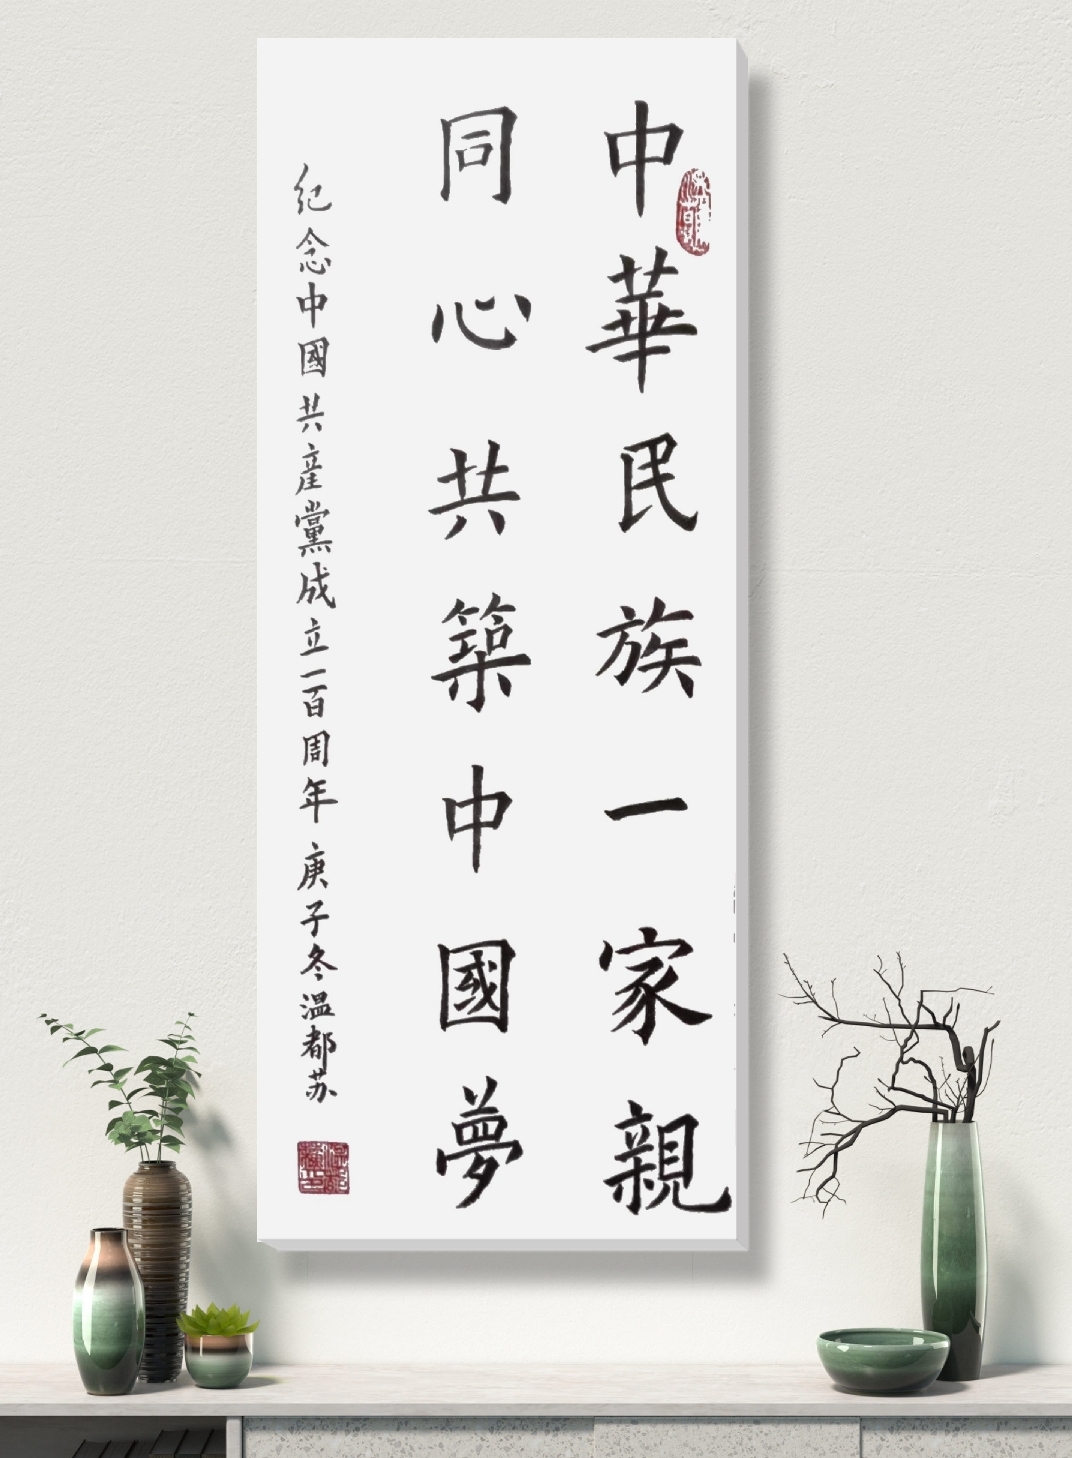 中華民族一家親
同心共築中國夢
纪念中國共產黨成立一百周年 庚子冬温都苏